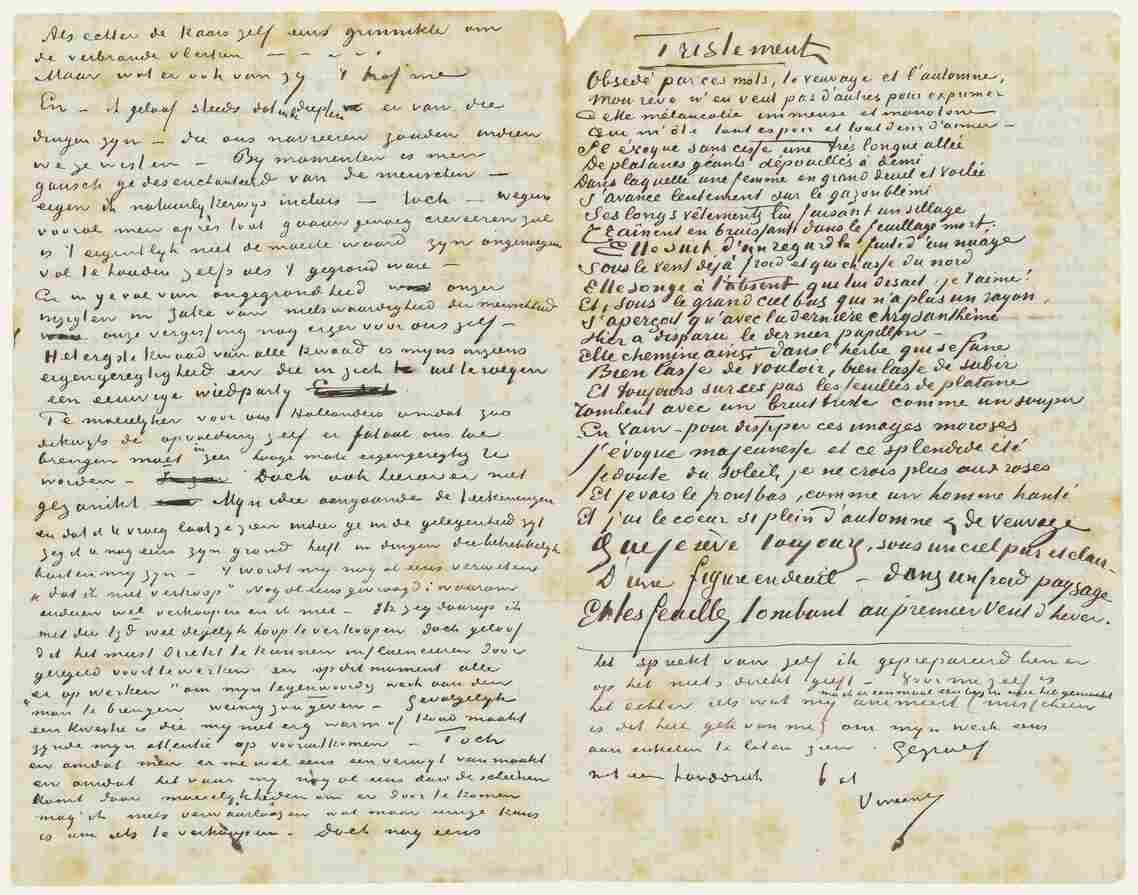 Als echter de kaars zelf eens grinnikte om
de verbrande vlerken — — —
Maar wat er ook van zy 't trof me
En — ik geloof steeds dat diepten er van die
dingen zyn — die ons navreeren zouden indien
we ze wisten — By momenten is men
gansch gedesenchanteerd van de menschen —
eigen ik natuurlykerwys incluis — toch — wegens
vooral men après tout gaauw genoeg creveeren zal
is 't eigentlyk niet de moeite waard zyn ongenoegen
vol te houden zelfs als 't gegrond ware —
En in geval van ongegrondheid onzer
inzigten in zake van nietswaardigheid der menschheid
onze vergissing nog erger voor ons zelf —
Het ergste kwaad van alle kwaad is myns inziens
eigengeregtigheid en die in zich uit te roeien
een eeuwige wiedparty
Te moeielyker voor ons Hollanders omdat zoo
dikwyls de opvoeding zelf er fataal ons toe
brengen moet in zeer hooge mate eigengeregtig te
worden — Doch ook hierover niet
gezanikt Myn idee aangaande de teekeningen
en dat ik u vroeg laat ze zien indien ge in de gelegenheid zyt
zeg ik u nog eens zyn grond heeft in dingen die betrekkelyk
buiten my zyn — 't wordt my nog al eens verweten
„dat ik niet verkoop" nog al eens gevraagd: waarom
anderen wel verkoopen en ik niet — Ik zeg daarop ik
met der tyd wel degelyk hoop te verkoopen doch geloof
dit het meest direkt te kunnen influenceeren door
geregeld voort te werken en op dit moment alle
„er op werken" om myn tegenwoordig werk aan den
man te brengen weinig zou geven — Gevolgelyk
een kwestie is die my niet erg warm of koud maakt
zynde myn attentie op vooruitkomen — Toch
en omdat men er me wel eens een verwyt van maakt
en omdat het voor my nog al eens dan de
komt door moeielykheden om er door te komen
mag ik niets verwaarloozen wat maar eenige kans
is om iets te verkoopen — Doch nog eens
Tristement
Obsedé par ces mots, le veuvage et l'automne,
Mon rêve n'en veut pas d'autres pour exprimer
Cette mélancolie immense et monotone
Qui m'ôte tout espoir et tout desir d'aimer —
Il évoque sans cesse une très longue allée
De platanes géants depouillés à demi
Dans laquelle une femme en grand deuil et voilée
S'avance lentement sur le gazon blêmi
Ses longs vêtements lui faisant un sillage
Trainent en bruissant dans le feuillage mort;
Elle suit d'un regard la fuite d'un nuage
Sous le vent déjà froid et qui chasse du nord
Elle songe à l'absent qui lui disait: je t'aime!
Et, sous le grand ciel bas qui n'a plus un rayon,
S'aperçoit qu'avec la dernière chrysanthème
Hier a disparu le dernier papillon —
Elle chemine ainsi dans l'herbe qui se fane
Bien lasse de vouloir, bien lasse de subir
Et toujours sur ses pas les feuilles de platane
Tombent avec un bruit triste comme un soupir
En vain — pour dissiper ces images moroses
J'évoque ma jeunesse et ce splendide été
Je doute du soleil, je ne crois plus aux roses
Et je vais le front bas, comme un homme hanté
Et j'ai le coeur si plein d'automne & de veuvage
Que je rêve toujours, sous un ciel pur et clair
D'une figure en deuil — dans un froid paysage
Et les feuilles tombant au premier vent d'hiver.
het spreekt van zelf ik geprepareerd ben er
op het niets direkt geeft — Voor me zelf is
het echter iets wat my animeert
is dit het geval van me om myn werk eens
aan enkelen te laten zien. Gegroet
met een handdruk t at
Vincent